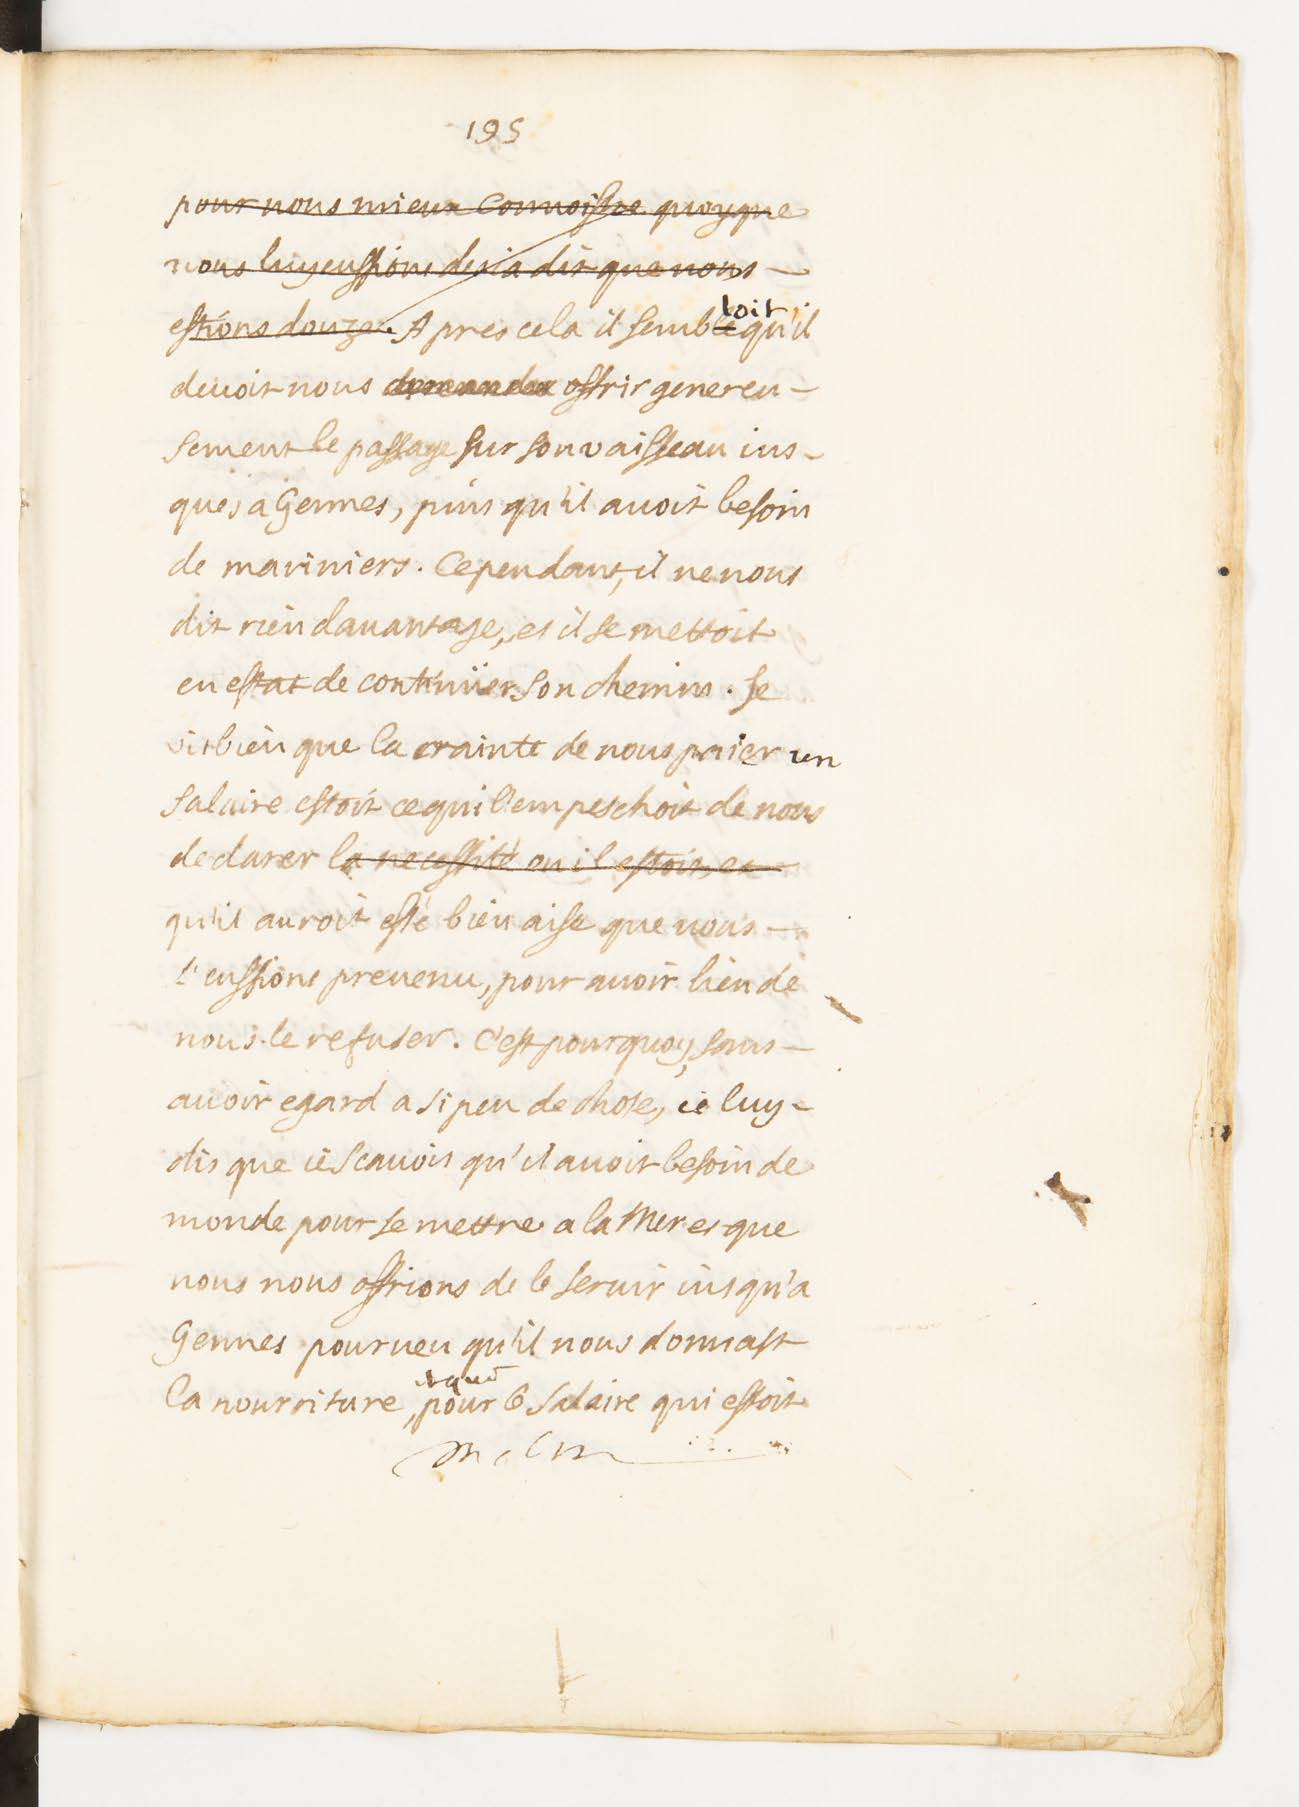 195
pour nous mieux connoistre quoyque
nous luy eussions desia dit que nous -
estions douze. Apres cela il sembleloit qu'il
deuoit nous demander offrir genereu -
sement le passage sur son vaisseau ius -
ques a Gennes, puis qu'il auoit besoin
de mariniers. Cependant, il ne nous
dit rien dauantage, et il se mettoit
en estat de continüer son chemin. Je
vis bien que la crainte de nous paier un
salaire estoit ce qui l'empeschoit de nous
declarer la necessité ou il estoit, et
qu'il auroit esté bien aise que nous -
l'eussions preuenu, pour auoir lieu de
nous le refuser. C'est pourquoy, sans -
auoir egard a si peu de chose, ie luy -
dis que ie scauois qu'il auoit besoin de
monde pour se mettre a la Mer et que
nous nous offrions de le seruir iusqu'a
Gennes pourueu qu'il nous donnast
la nourriture, pour le salaire qui estoit